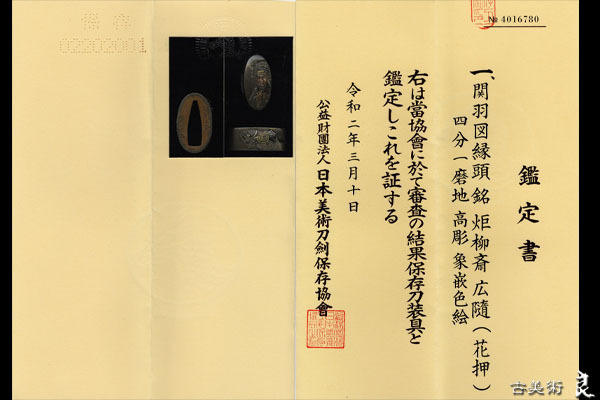 № 4016780
鑑定書
一、関羽図縁頭 銘 炬柳斎 広随（花押）
四分一磨地 高彫 象嵌色絵
右は當協會に於て審査の結果保存刀装具と
鑑定しこれを証する
令和二年三月十日
公益財團法人 日本美術刀劍保存協會
保存
02202001
古美術 良